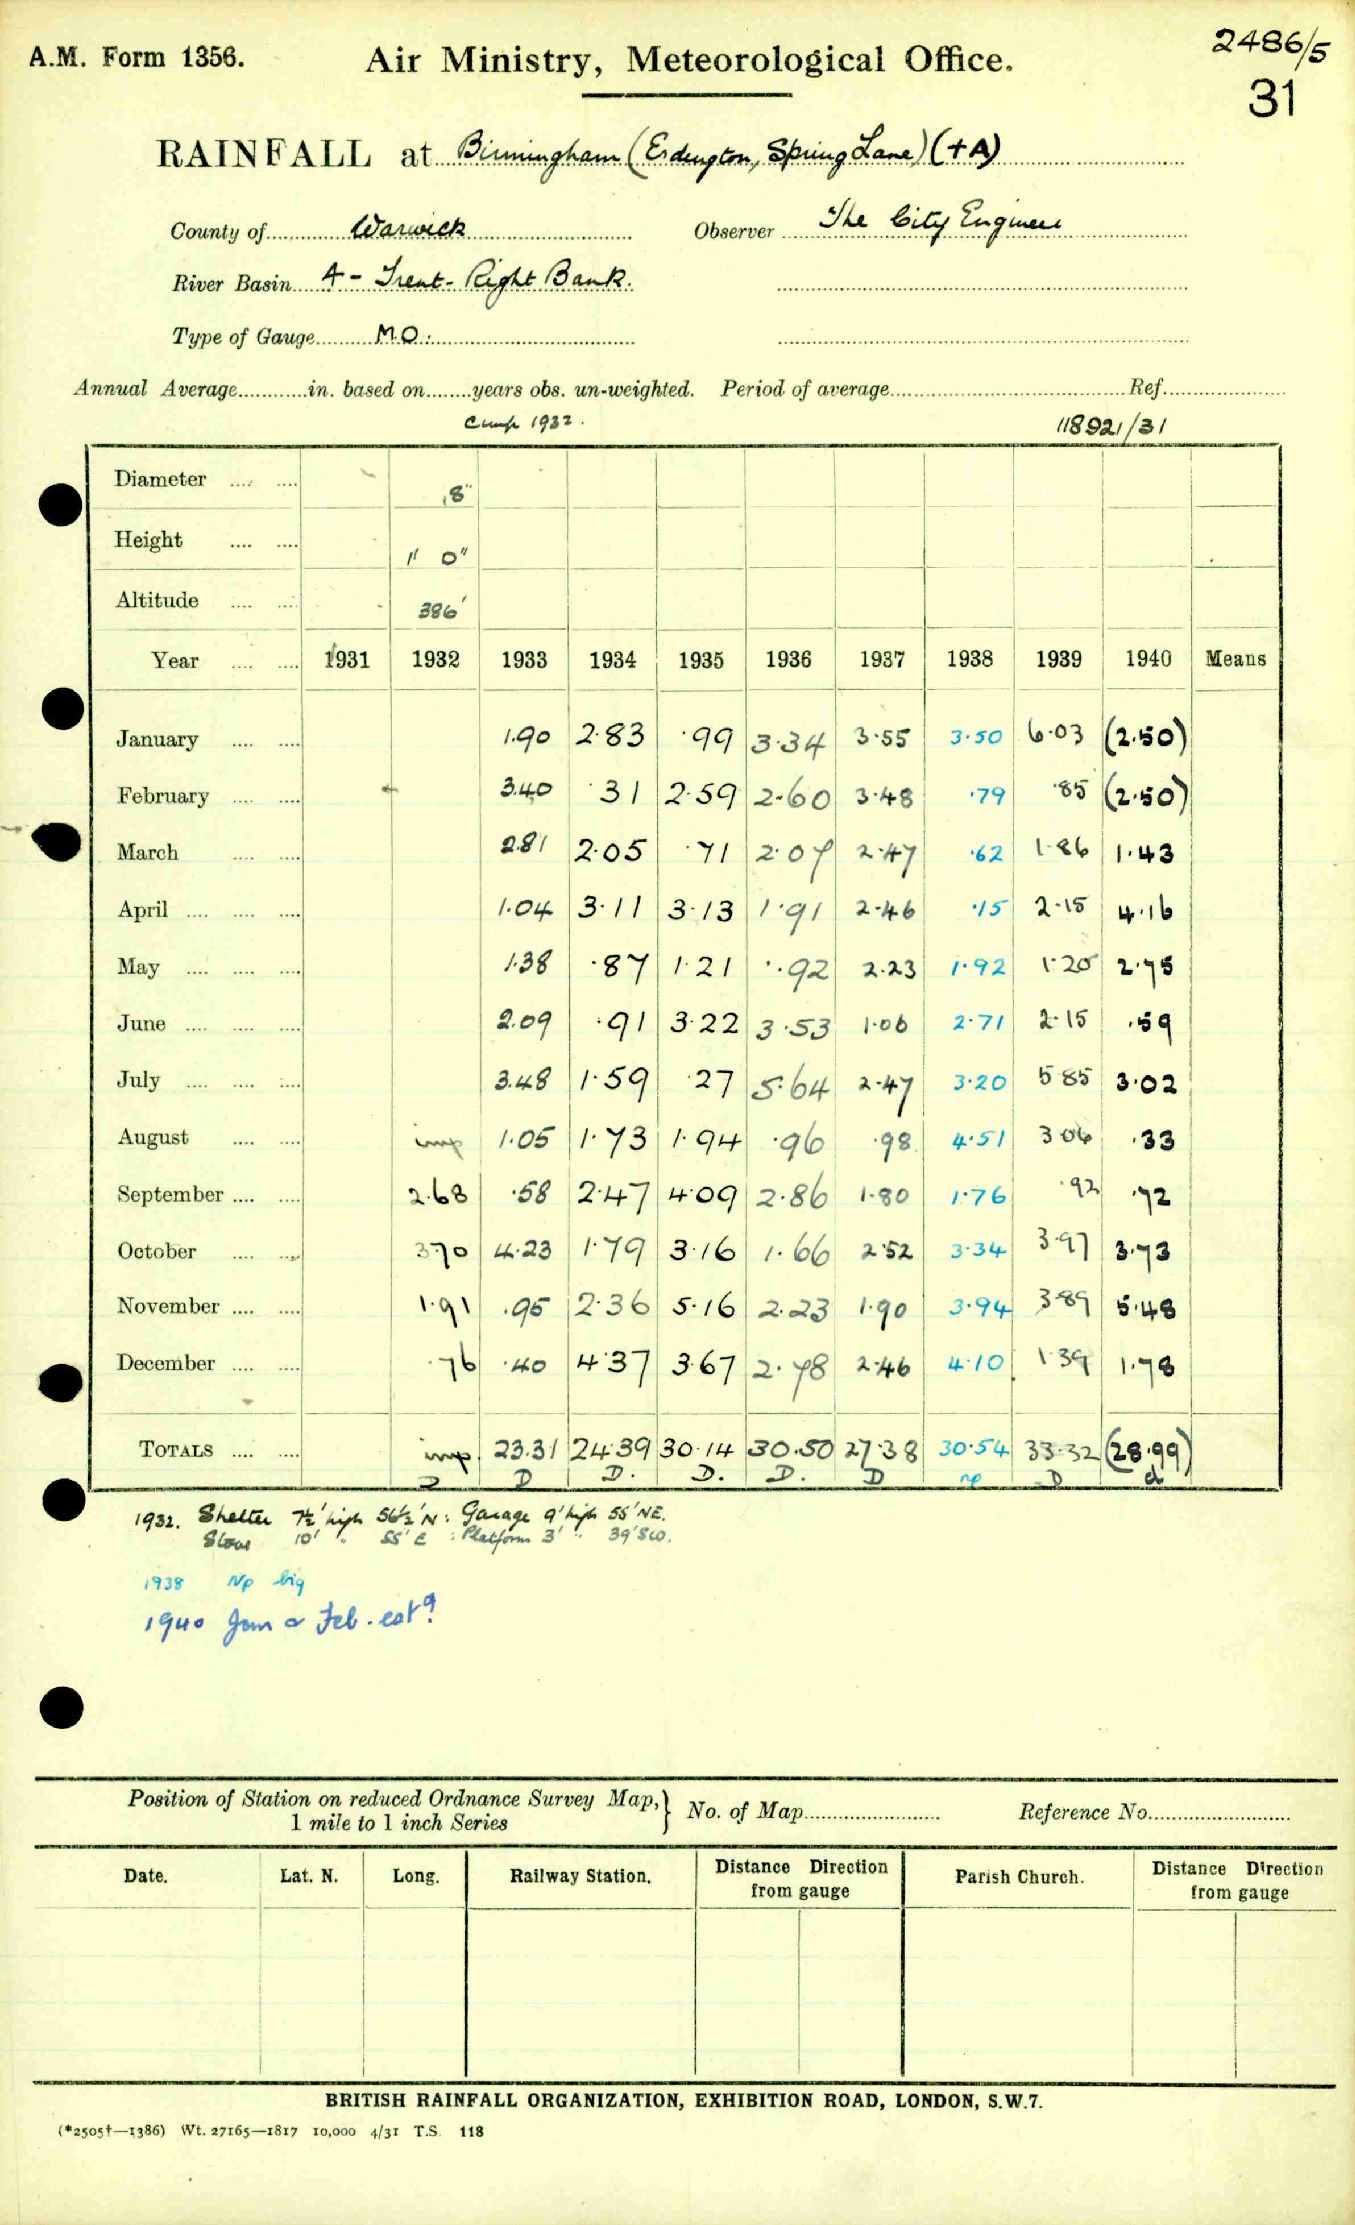 2486/5
A.M. Form 1356. Air Ministry, Meteorological Office.
31
RAINFALL at Birmingham (Erdington, Spring Lane) (+A)
County of Warwick Observer The City Engineer
River Basin 4 - Trent - Right Bank.
Type of Gauge M.O.
Annual Average in. based on years obs. un-weighted. Period of average Ref.
1932. 118921/31
Diameter 8"
Height 1' 0"
Altitude 386'
Year 1931 1932 1933 1934 1935 1936 1937 1938 1939 1940 Means
January 1.90 2.83 .99 3.34 3.55 3.50 6.03 (2.50)
February 3.40 .31 2.59 2.60 3.48 .79 .85 (2.50)
March 2.81 2.05 .71 2.07 2.47 .62 1.86 1.43
April 1.04 3.11 3.13 1.91 2.46 .15 2.15 4.16
May 1.38 .87 1.21 .92 2.23 1.92 1.20 2.75
June 2.09 .91 3.22 3.53 1.06 2.71 2.15 .59
July 3.48 1.59 .27 5.64 2.47 3.20 5.85 3.02
August imp 1.05 1.73 1.94 .96 .98 4.51 3.06 .33
September 2.68 .58 2.47 4.09 2.86 1.80 1.76 .92 .72
October 3.70 4.23 1.79 3.16 1.66 2.52 3.34 3.97 3.73
November 1.91 .95 2.36 5.16 2.23 1.90 3.94 3.89 5.48
December .76 .40 4.37 3.67 2.78 2.46 4.10 1.39 1.78
TOTALS imp. 23.31 24.39 30.14 30.50 27.38 30.54 33.32 (28.99)
D D D. D. D. D np D d
1932. Shelter 7½' high 56½' N : Garage 9' high 55' NE.
10' " 55' E : Platform 3' " 39' SW.
1938 Np big
1940 Jan & Feb. estd
Position of Station on reduced Ordnance Survey Map, } No. of Map Reference No.
1 mile to 1 inch Series
Date. Lat. N. Long. Railway Station. Distance Direction from gauge Parish Church. Distance Direction from gauge
BRITISH RAINFALL ORGANIZATION, EXHIBITION ROAD, LONDON, S.W.7.
(*2505†—1386) Wt. 27165—1817 10,000 4/31 T.S. 118